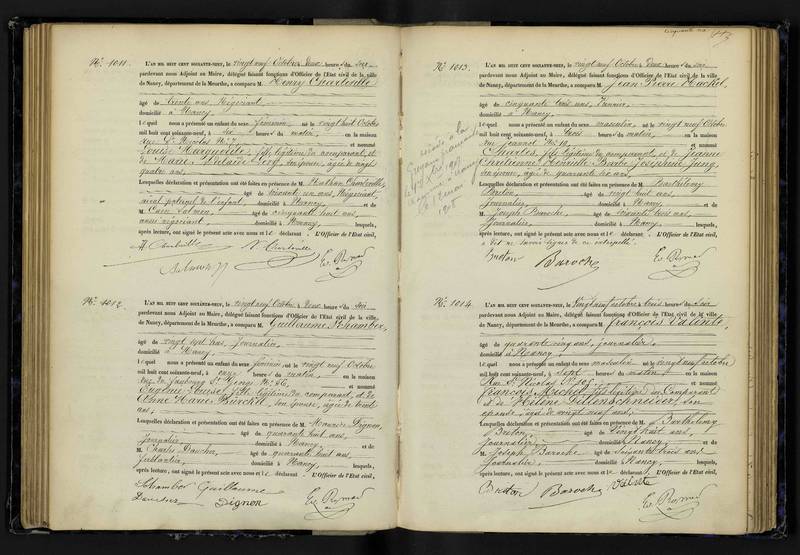 No. 1011.
L'AN MIL HUIT CENT SOIXANTE-NEUF, le vingt neuf Octobre à deux heures du soir
pardevant nous Adjoint au Maire, délégué faisant fonctions d'Officier de l'Etat civil de la ville
de Nancy, département de la Meurthe, a comparu M. Henry Charleville
âgé de trente ans, Négociant
domicilié à Nancy
lequel nous a présenté un enfant du sexe féminin né le vingt huit Octobre
mil huit cent soixante-neuf, à six heures du matin, en la maison
rue St Nicolas No. 7 et nommé
Louise Marguerite, fille légitime du comparant, et
de Marie Adelaïde son épouse, âgée de vingt
quatre ans,
Lesquelles déclaration et présentation ont été faites en présence de M. Nathan Charleville,
âgé de soixante un ans, Négociant
aïeul paternel de l'enfant, domicilié à Nancy, et de
M. Salmon, âgé de cinquante huit ans,
aussi négociant domicilié à Nancy, lesquels,
après lecture, ont signé le présent acte avec nous et le déclarant. L'Officier de l'Etat civil,
H. Charleville N. Charleville
Salmon
No. 1012.
L'AN MIL HUIT CENT SOIXANTE-NEUF, le vingt neuf Octobre à deux heures du soir
pardevant nous Adjoint au Maire, délégué faisant fonctions d'Officier de l'Etat civil de la ville
de Nancy, département de la Meurthe, a comparu M. Guillaume Schamber,
âgé de vingt sept ans, Journalier,
domicilié à Nancy,
lequel nous a présenté un enfant du sexe féminin, né le vingt neuf Octobre
mil huit cent soixante-neuf, à onze heures du matin, en la maison
rue du faubourg St Georges No. 66, et nommé
Eugénie Louise, fille légitime du comparant, et de
Anne Marie son épouse, âgée de trente
ans,
Lesquelles déclaration et présentation ont été faites en présence de M. Dignon,
Journalier âgé de quarante huit ans,
domicilié à Nancy, et de
M. Charles Daucher, âgé de quarante huit ans,
domicilié à Nancy, lesquels,
après lecture, ont signé le présent acte avec nous et le déclarant. L'Officier de l'Etat civil,
Schamber Guillaume
Dignon
No. 1013.
L'AN MIL HUIT CENT SOIXANTE-NEUF, le vingt neuf Octobre à deux heures du soir
pardevant nous Adjoint au Maire, délégué faisant fonctions d'Officier de l'Etat civil de la ville
de Nancy, département de la Meurthe, a comparu M. Jean Pierre
âgé de cinquante trois ans,
domicilié à Nancy
lequel nous a présenté un enfant du sexe masculin né le vingt neuf Octobre
mil huit cent soixante-neuf, à trois heures du matin, en la maison
rue Jeannot No. 10, et nommé
Charles, fils légitime du comparant, et de Jeanne
Christianne Henriette Marie Joséphine
son épouse, âgée de quarante six ans,
Lesquelles déclaration et présentation ont été faites en présence de M. Barthélemy
Breton, âgé de vingt huit ans,
Journalier, domicilié à Nancy, et de
M. Joseph Baroche, âgé de soixante trois ans,
Journalier, domicilié à Nancy, lesquels,
après lecture, ont signé le présent acte avec nous et le déclarant. L'Officier de l'Etat civil,
a dit ne savoir signer de ce interpellé.
Breton Baroche
No. 1014.
L'AN MIL HUIT CENT SOIXANTE-NEUF, le vingt neuf octobre à trois heures du soir
pardevant nous Adjoint au Maire, délégué faisant fonctions d'Officier de l'Etat civil de la ville
de Nancy, département de la Meurthe, a comparu M. françois Valente,
âgé de quarante cinq ans, journalier,
domicilié à Nancy
lequel nous a présenté un enfant du sexe masculin né le vingt neuf octobre
mil huit cent soixante-neuf, à sept heures du matin, en la maison
Rue St Nicolas No. et nommé
françois Michel, fils légitime du Comparant
et de Hélène son
épouse, âgée de vingt neuf ans,
Lesquelles déclaration et présentation ont été faites en présence de M. Barthélemy
Breton, âgé de vingt huit ans,
journalier, domicilié à Nancy, et de
M. Joseph Baroche âgé de soixante trois ans
journalier, domicilié à Nancy, lesquels,
après lecture, ont signé le présent acte avec nous et le déclarant. L'Officier de l'Etat civil,
Breton Baroche Valente